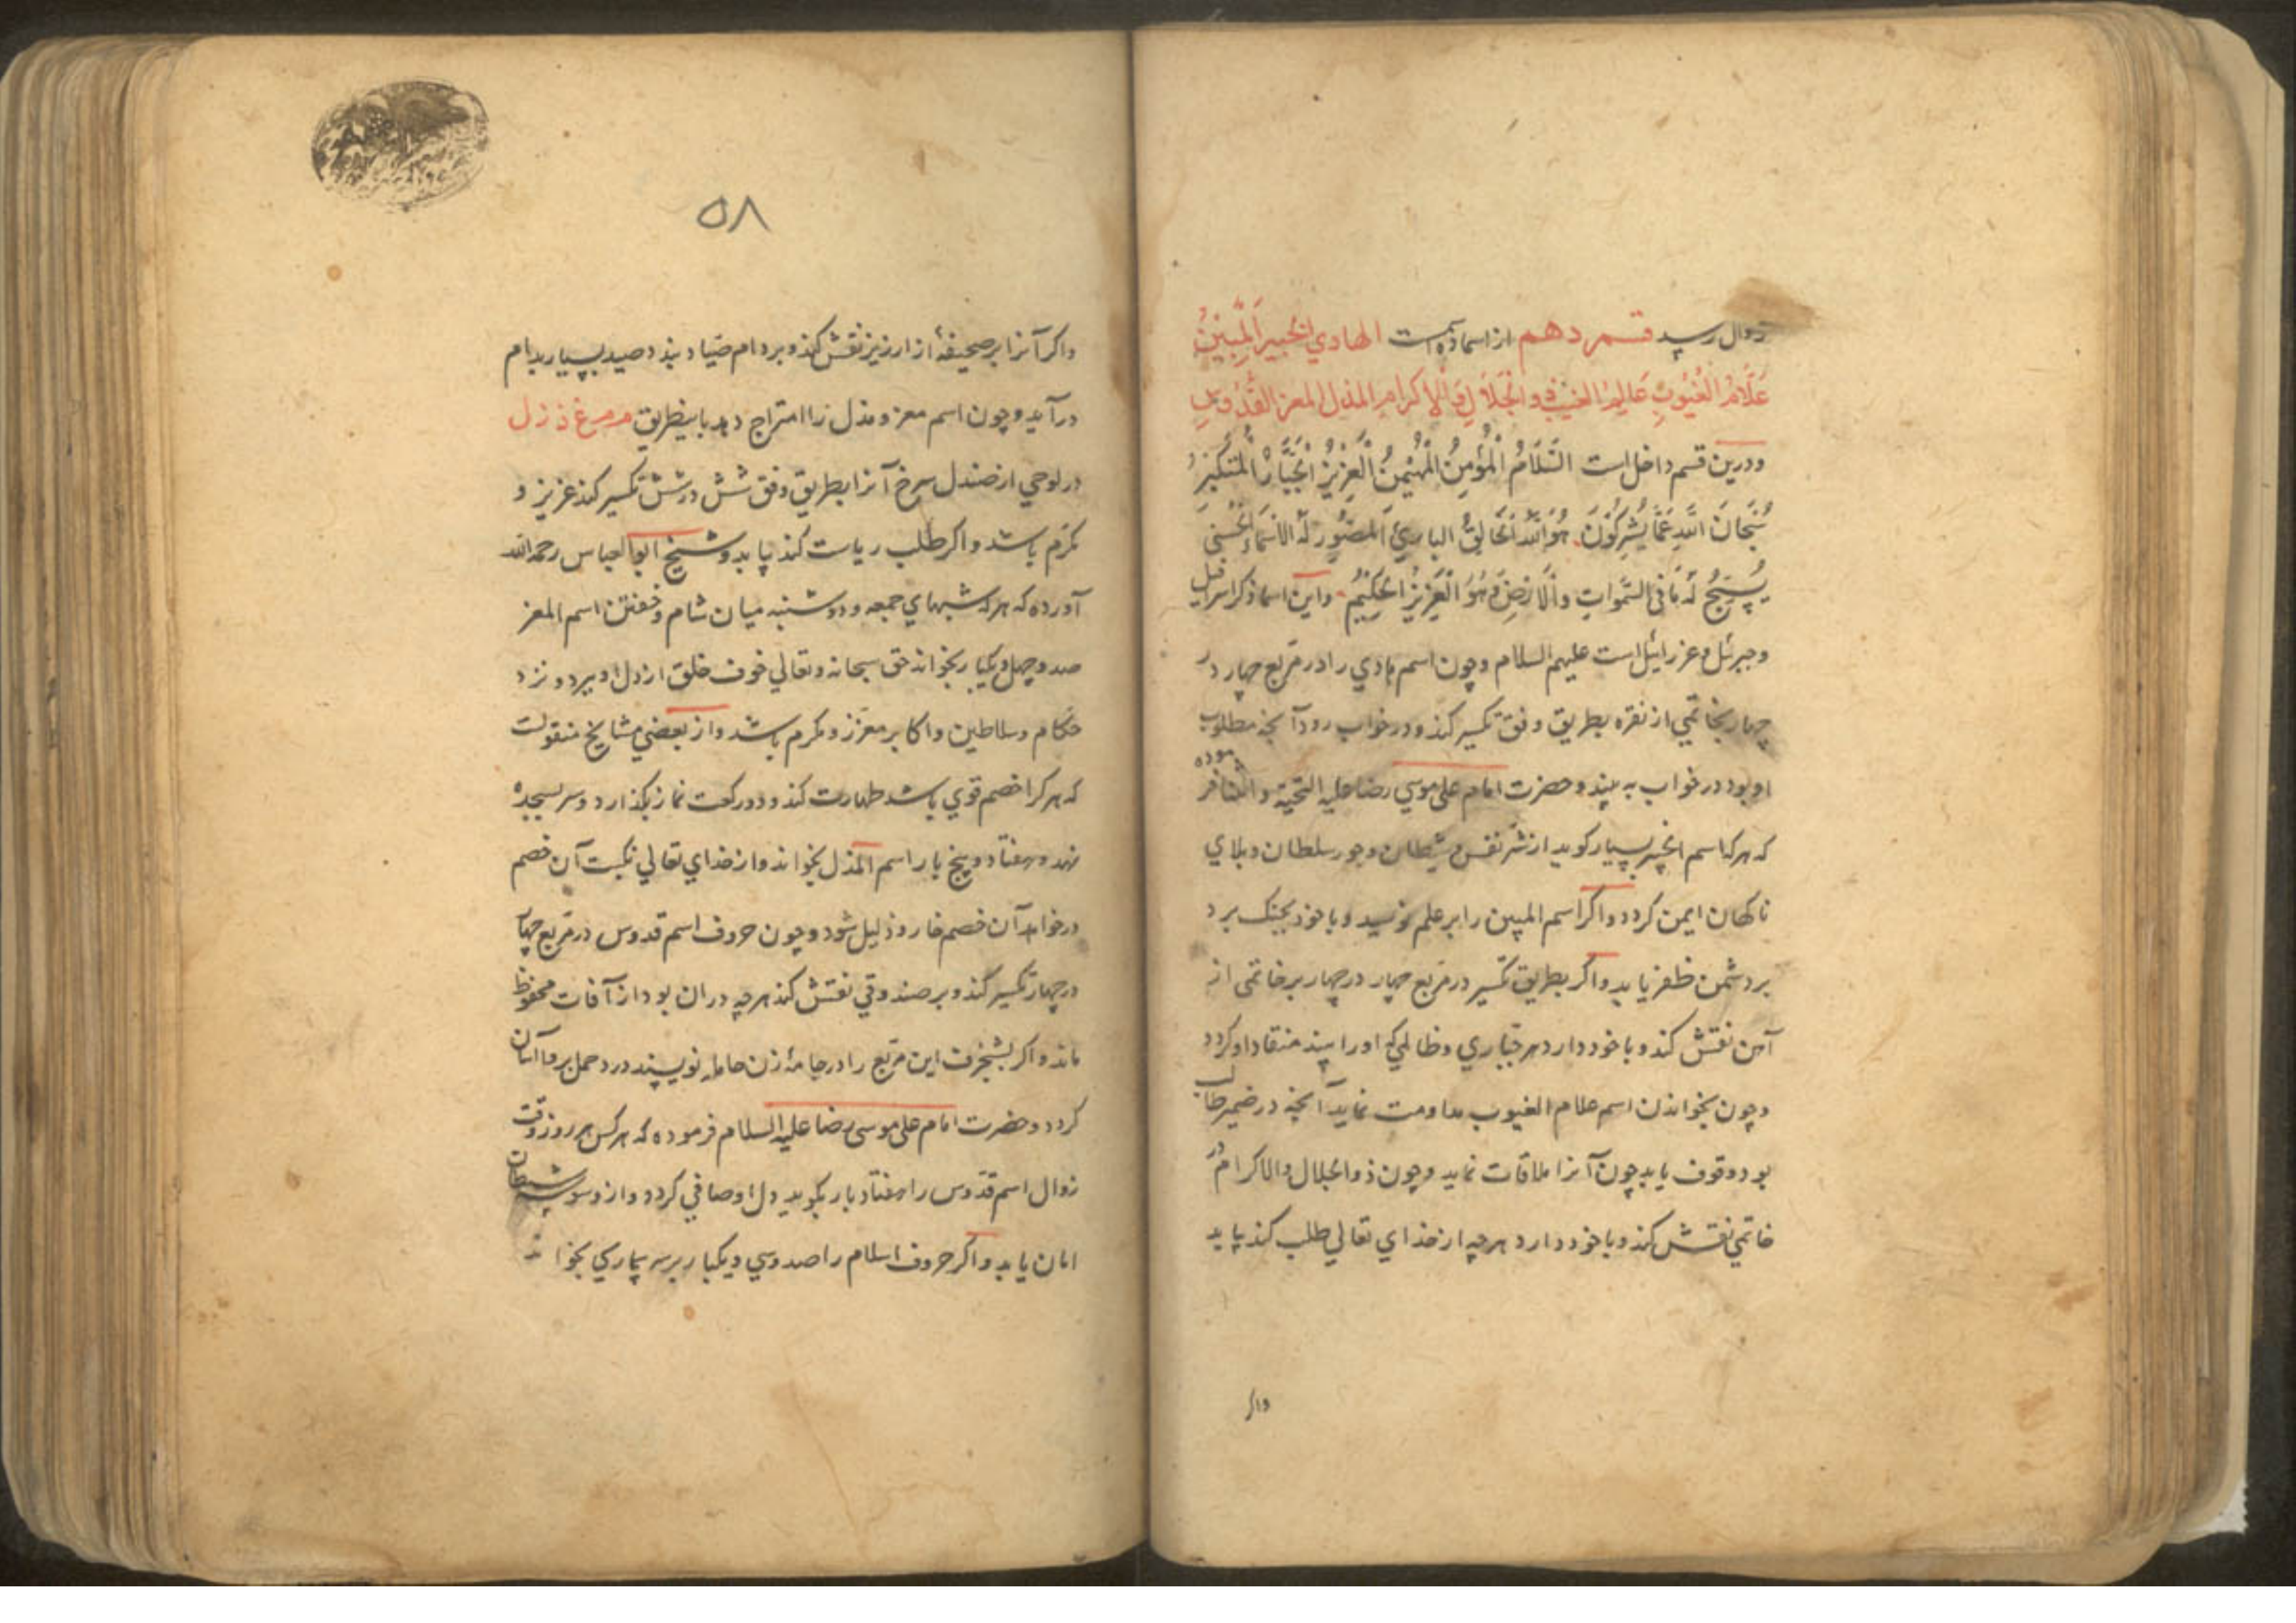 زوال رسد قسم دهم از اسماء ده است الهادي الخبير المبين
علّام الغيوب عالم الغيب ذو الجلال والإكرام المذل المعز القدوس
ودرین قسم داخل است السَّلَامُ الْمُؤْمِنُ الْمُهَيْمِنُ الْعَزِيزُ الْجَبَّارُ الْمُتَكَبِّرُ
سُبْحَانَ اللَّهِ عَمَّا يُشْرِكُونَ هُوَ اللَّهُ الْخَالِقُ البارئُ المصوّر لَهُ الأَسْمَاءُ الْحُسْنَى
يُسَبِّحُ لَهُ مَا فِي السَّمَوَاتِ وَالْأَرْضِ وَهُوَ الْعَزِيزُ الْحَكِيمُ واین اسما ذکر اسرافیل
وجبرئل وعزرایئل است علیهم السلام وچون اسم هادي را در مربع چهار در
چهار بخاتمي از نقره بطریق وفق تکسیر کند ودر خواب رود آنچه مطلوب
او بود در خواب به بیند و حضرت امام علي موسي رضا علیه التحیة والثنا فرموده
که هر که اسم الخبیر بسیار کوید از شر نفس و شیطان وجور سلطان وبلاي
ناکهان ایمن کردد واکر اسم المبین را بر علم نویسد وبا خود بجنک برد
بر دشمن ظفر یابد واکر بطریق تکسیر در مربع چهار در چهار بر خاتمی از
آهن نقش کند وبا خود دارد هر جباري وظالمي که او را بیند منقاد او کردد
وچون بخواندن اسم علام الغیوب مداومت نماید آنچه در ضمیر طالب
بود وقوف یابد چون آنرا ملاقات نماید وچون ذو الجلال والاکرام در
خاتمي نقش کند وبا خود دارد هرچه از خداي تعالي طلب کند یابد
واکر
۵۸
واکر آنرا بر صحیفهٔ از ارزیز نقش کند وبر دام صیاد بندد صید بسیار بدام
درآید وچون اسم معز ومذل را امتزاج دهد باینطریق م م ع ذ ز ل
در لوحي از صندل سرخ آنرا بطریق وفق شش در شش تکسیر کند عزیز و
مکرّم باشد واکر طلب ریاست کند یابد وشیخ ابو العباس رحمه الله
آورده که هر که شبهاي جمعه ودوشنبه میان شام وخفتن اسم المعز
صد وچهل ویکبار بخواند حق سبحانه وتعالي خوف خلق از دل او ببرد ونزد
حکام وسلاطین واکابر معزز ومکرم باشد واز بعضي مشایخ منقولست
که هر کرا خصم قوي باشد طهارت کند ودو رکعت نماز بکذارد وسر بسجده
نهد وهفتاد وپنج بار اسم المذل بخواند واز خداي تعالي نکبت آن خصم
درخواهد آن خصم خار وذلیل شود وچون حروف اسم قدوس در مربع چهار
در چهار تکسیر کند وبر صندوقي نقش کند هرچه دران بود از آفات محفوظ
ماند واکر بشنجرف این مربع را در جامهٔ زن حامله نویسند درد حمل بر وي آسان
کردد وحضرت امام علی موسی رضا علیه السلام فرموده که هر کس هر روز وقت
زوال اسم قدّوس را هفتاد بار بکوید دل او صافي کردد واز وسوسه شیطان
امان یابد واکر حروف اسلام را صد وسي ویکبار بر سر بیماري بخواند